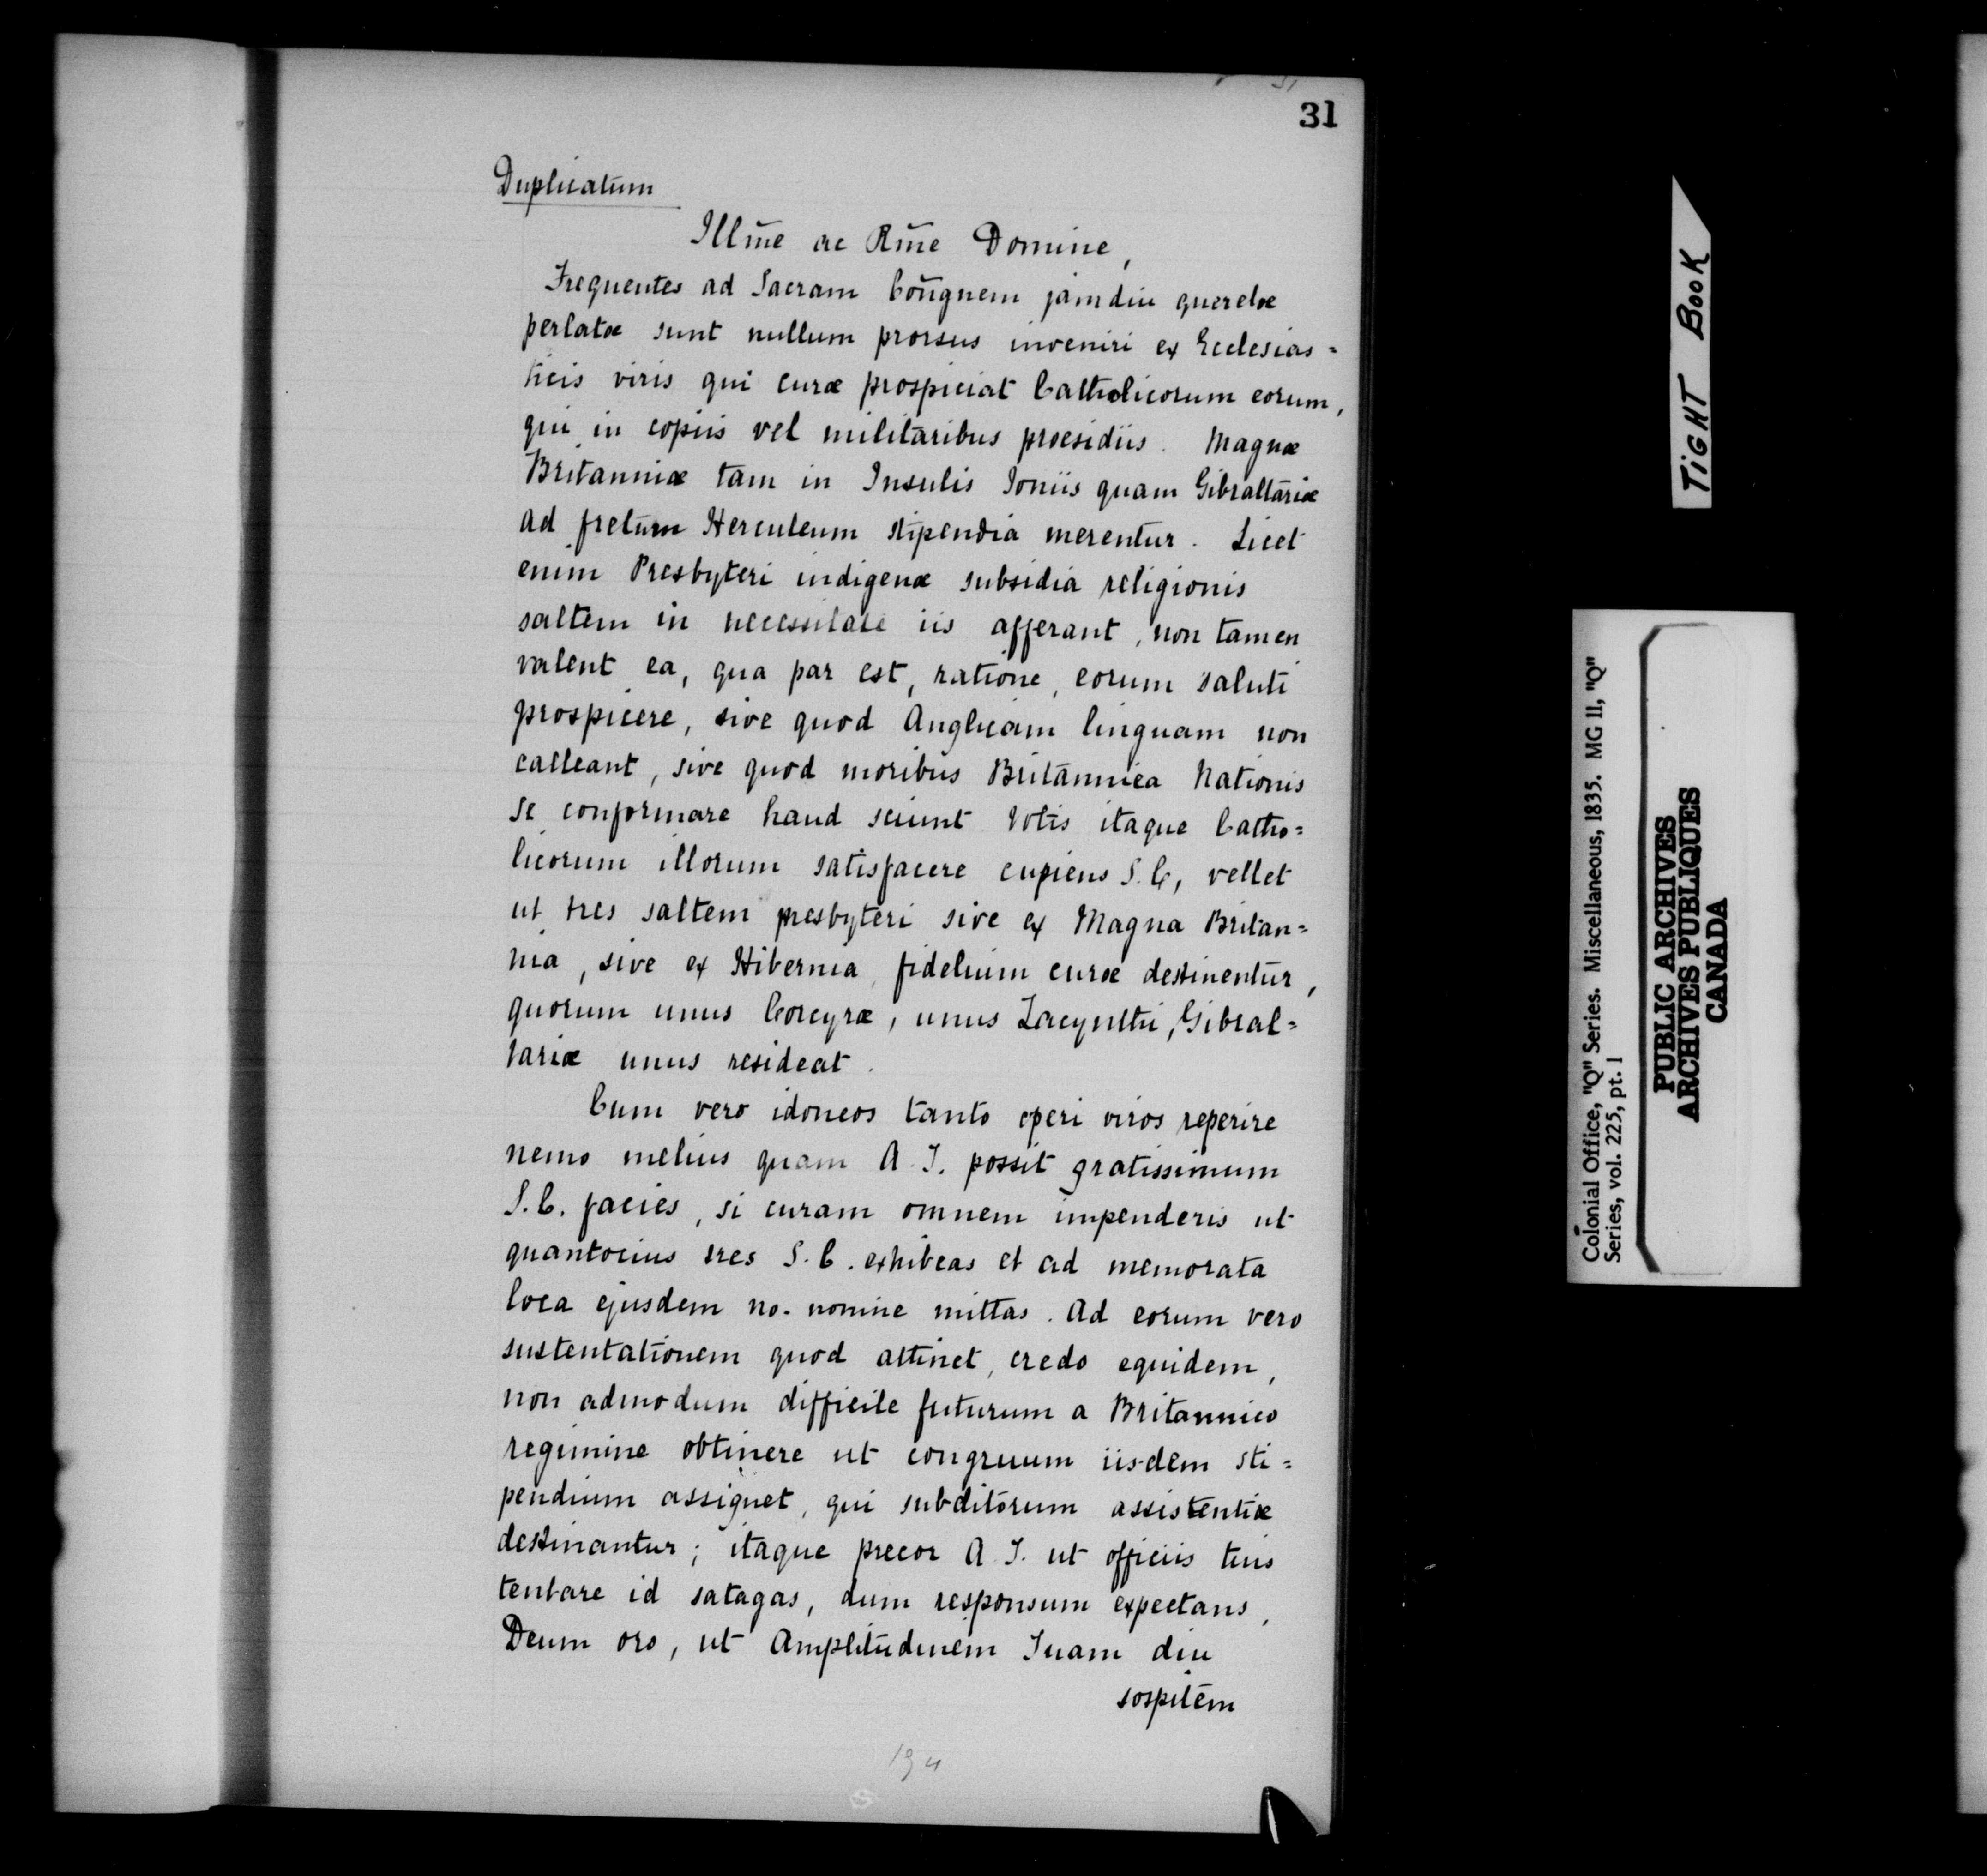 31
Duplicatum
Illm̃e ac Rm̃e Domine,
Frequentes ad Sacram Coñgnem jamdiu querelæ
perlatæ sunt nullum prorsus inveniri ex Ecclesias=
ticis viris qui curæ prospiciat Catholicorum eorum,
qui in copiis vel militaribus præsidiis. Magnæ
Britanniæ tam in Insulis Ioniis quam Gibraltariæ
ad fretum Herculeum stipendia merentur. Licet
enim Presbyteri indigenæ subsidia religionis
saltem in necessitate iis afferant, non tamen
valent ea, qua par est, ratione, eorum saluti
prospicere, sive quod Anglicam linguam non
calleant, sive quod moribus Britannica Nationis
se conformare haud sciunt Votis itaque Catho=
licorum illorum satisfacere cupiens S.C, vellet
ut tres saltem presbyteri sive ex Magna Britan=
nia, sive ex Hibernia, fidelium curæ destinentur,
quorum unus Corcyræ, unus Zacynthi, Gibral=
tariæ unus resideat.
Cum vero idoneos tanto operi viros reperire
nemo melius quam A.T. possit gratissimum
S.C. facies, si curam omnem impenderis ut
quantocius tres S.C. exhibeas et ad memorata
loca ejusdem no. nomine mittas. Ad eorum vero
sustentationem quod attinet, credo equidem,
non admodum difficile futurum a Britannico
regimine obtinere ut congruum iisdem sti=
pendium assignet, qui subditorum assistentiæ
destinantur; itaque precor A.T. ut officiis tuis
tentare id satagas, dum responsum expectans,
Deum oro, ut Amplitudinem Tuam diu
sospitem
194
TIGHT BOOK
Colonial Office, "Q" Series. Miscellaneous, 1835. MG 11, "Q"
Series, vol. 225, pt. 1
PUBLIC ARCHIVES
ARCHIVES PUBLIQUES
CANADA